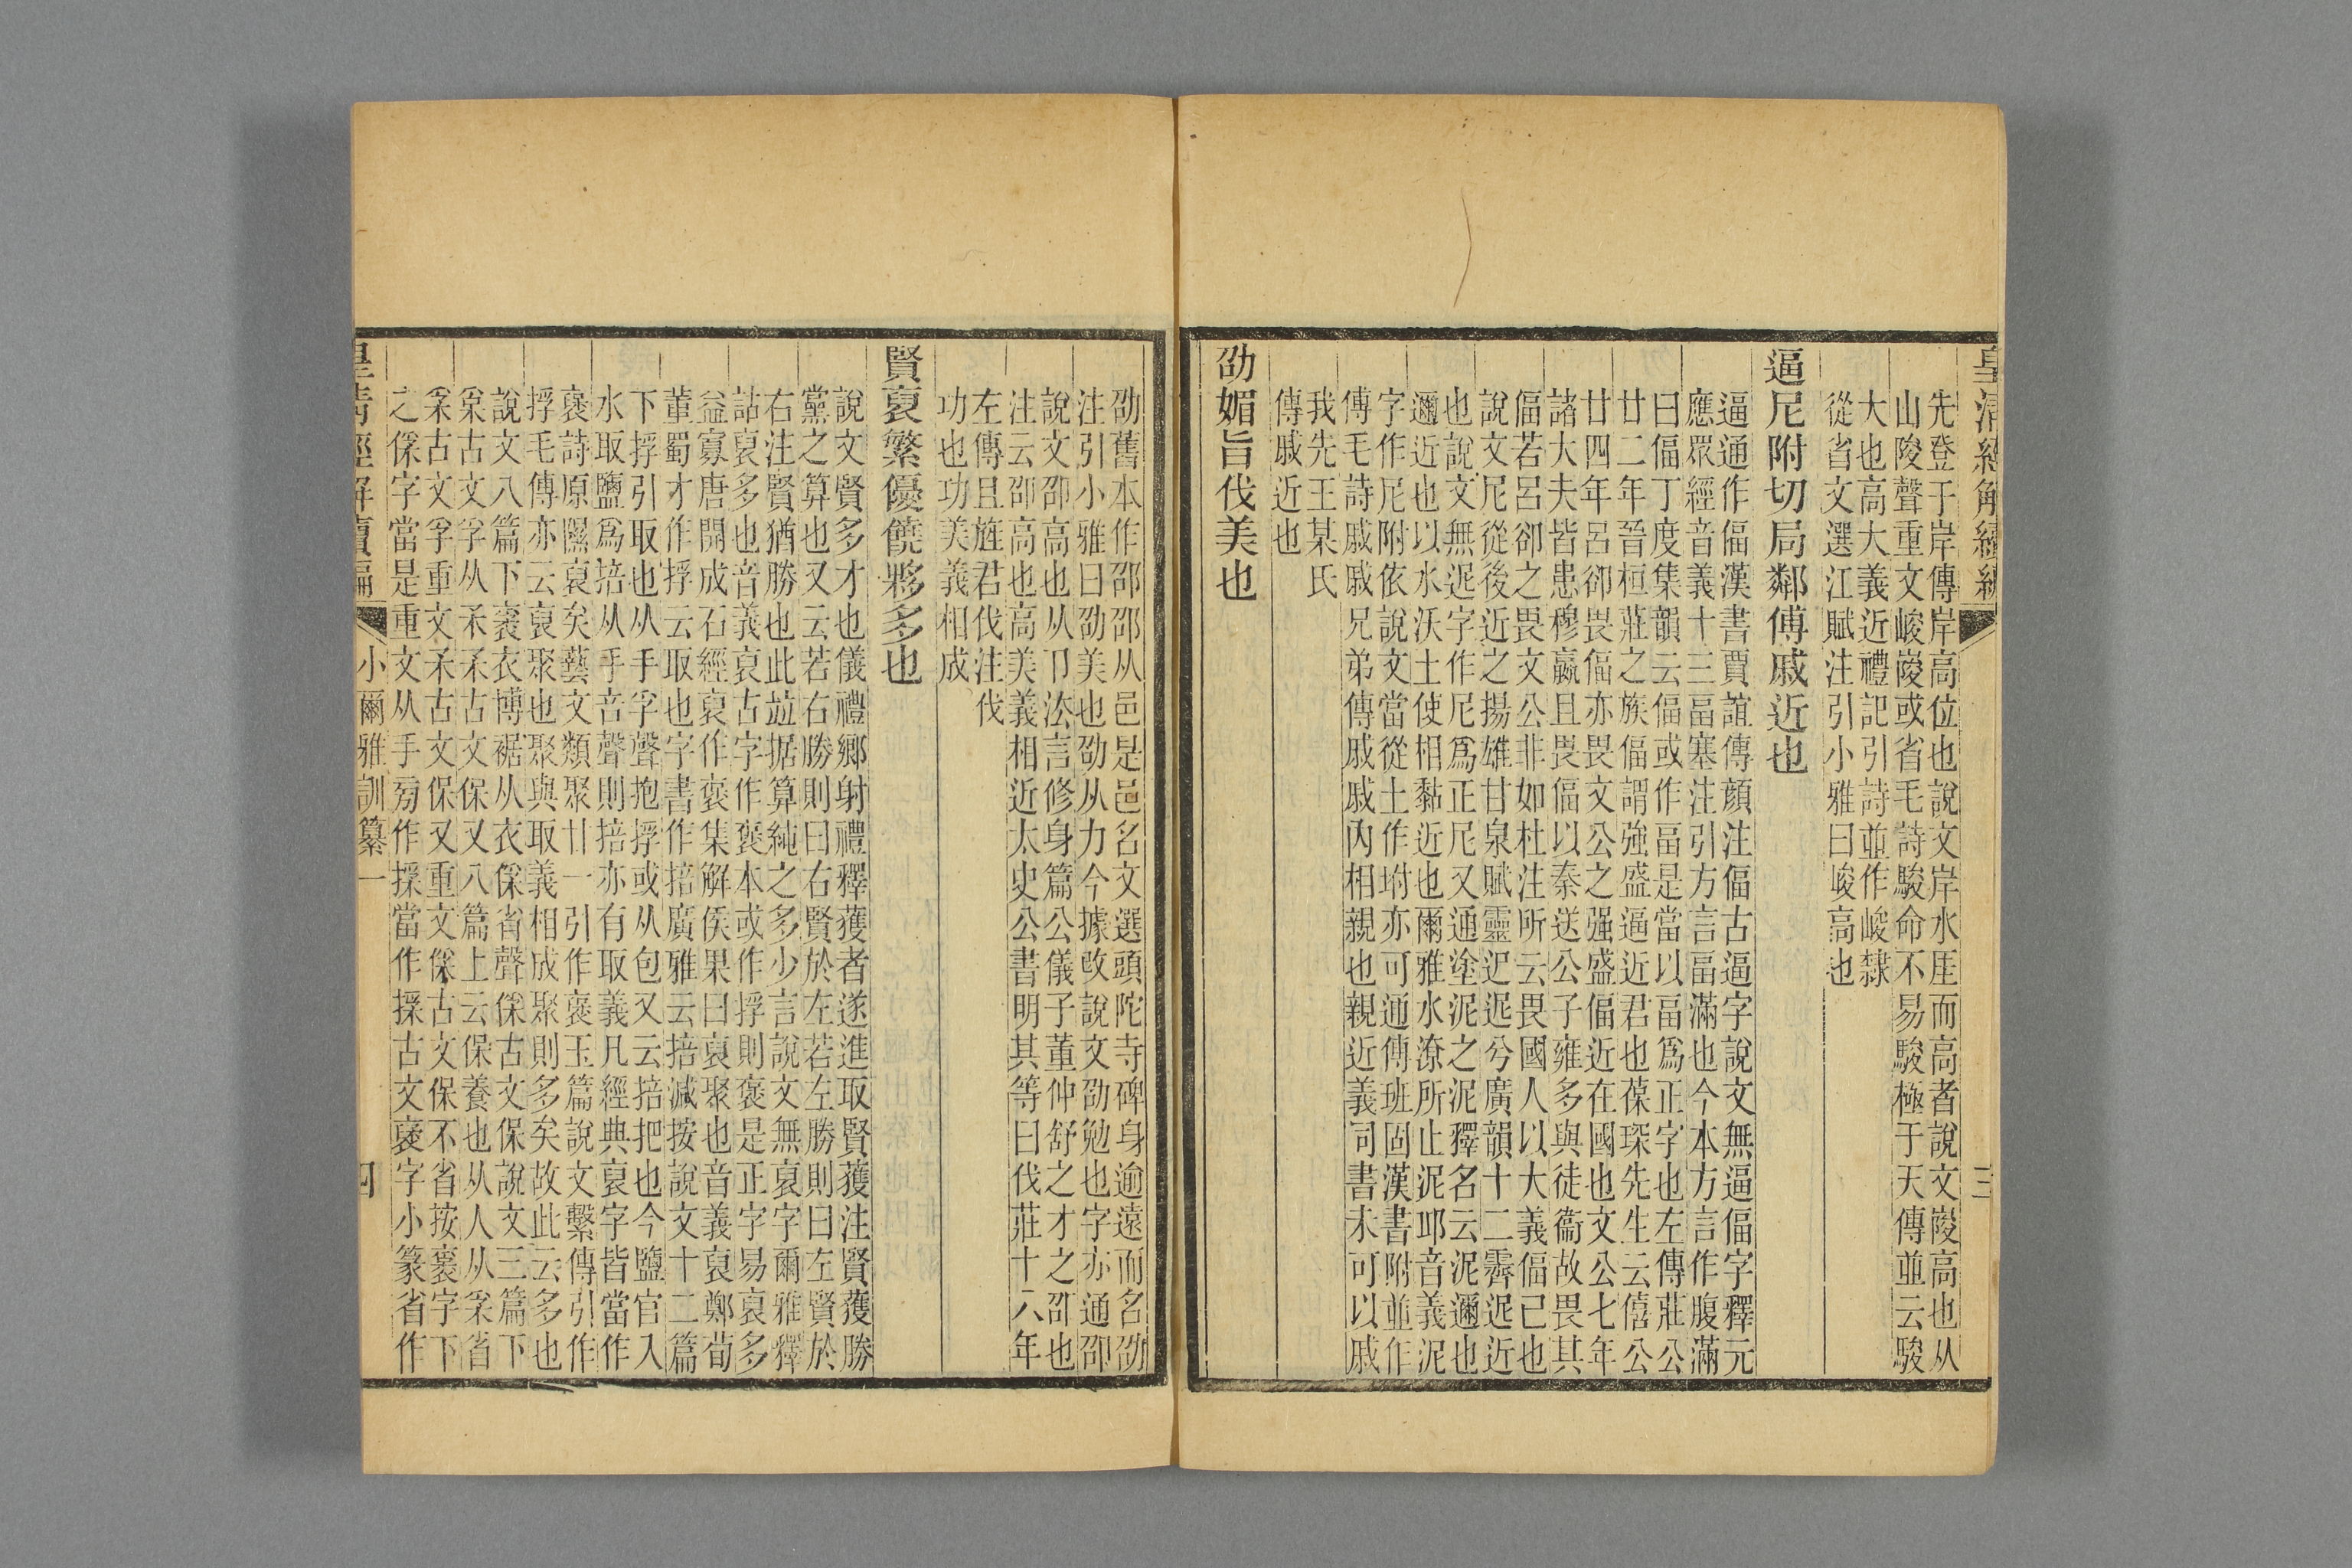 皇清經解續編
三
先登于岸傳岸高位也說文岸水厓而高者說文峻高也从
山陵聲重文峻㕙或省毛詩駿命不易駿極于天傳並云駿
大也高大義近禮記引詩並作峻隸
從省文選江賦注引小雅曰峻高也
逼尼附切局鄰傅戚近也
逼通作偪漢書賈誼傳顏注偪古逼字說文無逼偪字釋元
應眾經音義十三畐塞注引方言畐滿也今本方言作腹滿
曰偪丁度集韻云偪或作畐是當以畐爲正字也左傳莊公
廿二年晉桓莊之族偪謂強盛逼近君也葆琛先生云僖公
廿四年呂卻畏偪亦畏文公之强盛偪近在國也文公七年
諸大夫皆患穆嬴且畏偪以秦送公子雍多與徒衞故畏其
偪若呂卻之畏文公非如杜注所云畏國人以大義偪已也
說文尼從後近之揚雄甘泉賦靈迟迟兮廣韻十二霽迡近
也說文無泥字作尼爲正尼又通塗泥之泥釋名云泥邇也
邇近也以水沃土使相黏近也爾雅水潦所止泥邱音義泥
字作尼附依說文當從土作坿亦可通傳班固漢書附並作
傅毛詩戚戚兄弟傳戚戚內相親也親近義同書未可以戚
我先王某氏
傳戚近也
劭媚旨伐美也
劭舊本作邵邵从邑是邑名文選頭陀寺碑身逾遠而名劭
注引小雅曰劭美也劭从力今據改說文劭勉也字亦通卲
說文卲高也从卩法言修身篇公儀子董仲舒之才之卲也
注云卲高也高美義相近太史公書明其等曰伐莊十八年
左傳且旌君伐注伐
功也功美義相成
賢裒繁優饒夥多也
說文賢多才也儀禮鄉射禮釋獲者遂進取賢獲注賢獲勝
黨之算也又云若右勝則曰右賢於左若左勝則曰左賢於
右注賢猶勝也此竝据算純之多少言說文無裒字爾雅釋
詁裒多也音義裒古字作褒本或作捊則褒是正字易裒多
益寡唐開成石經裒作褒集解侯果曰裒聚也音義裒鄭荀
董蜀才作捊云取也字書作掊廣雅云掊減按說文十二篇
下捊引取也从手孚聲抱捊或从包又云掊把也今鹽官入
水取鹽爲掊从手咅聲則掊亦有取義凡經典裒字皆當作
褒詩原隰裒矣藝文類聚廿一引作褒玉篇說文繫傳引作
捊毛傳亦云裒聚也聚與取義相成聚則多矣故此云多也
說文八篇下褒衣博裾从衣保省聲保古文保說文三篇下
古文孚从𤓽𤓽古文保又八篇上云保養也从人从𤓽省
𤓽古文孚重文𤓽古文保又重文保古文保不省按褒字下
之保字當是重文从手旁作㨐當作㨐古文褒字小篆省作
皇清經解續編
小爾雅訓纂一
四